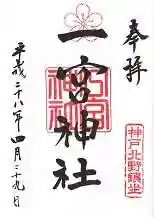 奉拝
神戸北野鎮坐
一宮神社
平成二十八年四月二十九日